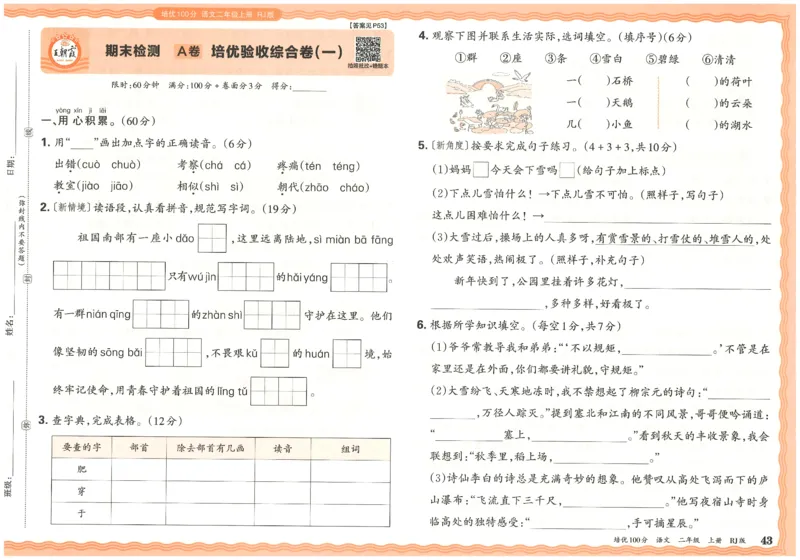 培优100分 语文二年级上册 RJ版
【答案见P53】
王朝霞
期末检测 A卷 培优验收综合卷(一)
拍照批改+错题本
限时:60分钟 满分:100分+卷面分3分 得分:______
yòng xīn jī lěi
一、用心积累。(60分)
1. 用“____”画出加点字的正确读音。(6分)
出错(cuò chuò) 考察(chá cá) 疼痛(tén téng)
教室(jiào jiāo) 相似(shì sì) 朝代(zhāo cháo)
2. [新情境]读语段,认真看拼音,规范写字词。(19分)
祖国南部有一座小dǎo ,这里远离陆地,sì miàn bā fāng
只有wú jìn 的hǎi yáng 。
有一群nián qīng 的zhàn shì 守护在这里。他们
像坚韧的sōng bǎi ,不畏艰kǔ 的huán 境,始
终牢记使命,用青春守护着祖国的lǐng tǔ 。
3. 查字典,完成表格。(12分)
要查的字 部首 除去部首有几画 读音 组词
肥
穿
于
4. 观察下图并联系生活实际,选词填空。(填序号)(6分)
①群 ②座 ③条 ④雪白 ⑤碧绿 ⑥清清
一( )石桥 ( )的荷叶
一( )天鹅 ( )的云朵
几( )小鱼 ( )的湖水
5. [新角度]按要求完成句子练习。(4+3+3,共10分)
(1)妈妈□今天会下雪吗□(给句子加上标点)
(2)下点儿雪怕什么!→下点儿雪不可怕。(照样子,写句子)
这点儿困难怕什么!→
(3)大雪过后,操场上的人真多呀,有赏雪景的、打雪仗的、堆雪人的,处
处欢声笑语,热闹极了。(照样子,补充句子)
新年快到了,公园里挂着许多花灯,
,多种多样,好看极了。
6. 根据所学知识填空。(每空1分,共7分)
(1)爷爷常教导我和弟弟:“‘不以规矩,______。’不管是在
家里还是在外面,你们都要讲礼貌,守规矩。”
(2)大雪纷飞、天寒地冻时,我不禁想起了柳宗元的诗句:“______
______,万径人踪灭。”提到塞北和江南的不同风景,哥哥便吟诵道:
“______塞上,______。”看到秋天的丰收景象,我会
联想到:“秋季里,稻上场,______。”
(3)诗仙李白的诗总是充满奇妙的想象。他赞叹从高处飞泻而下的庐
山瀑布:“飞流直下三千尺,______。”他写夜宿山寺时身
临高处的独特感受:“______,手可摘星辰。”
日期:
姓名:
班级:
(弥封线内不要答题)
培优100分 语文 二年级 上册 RJ版 43